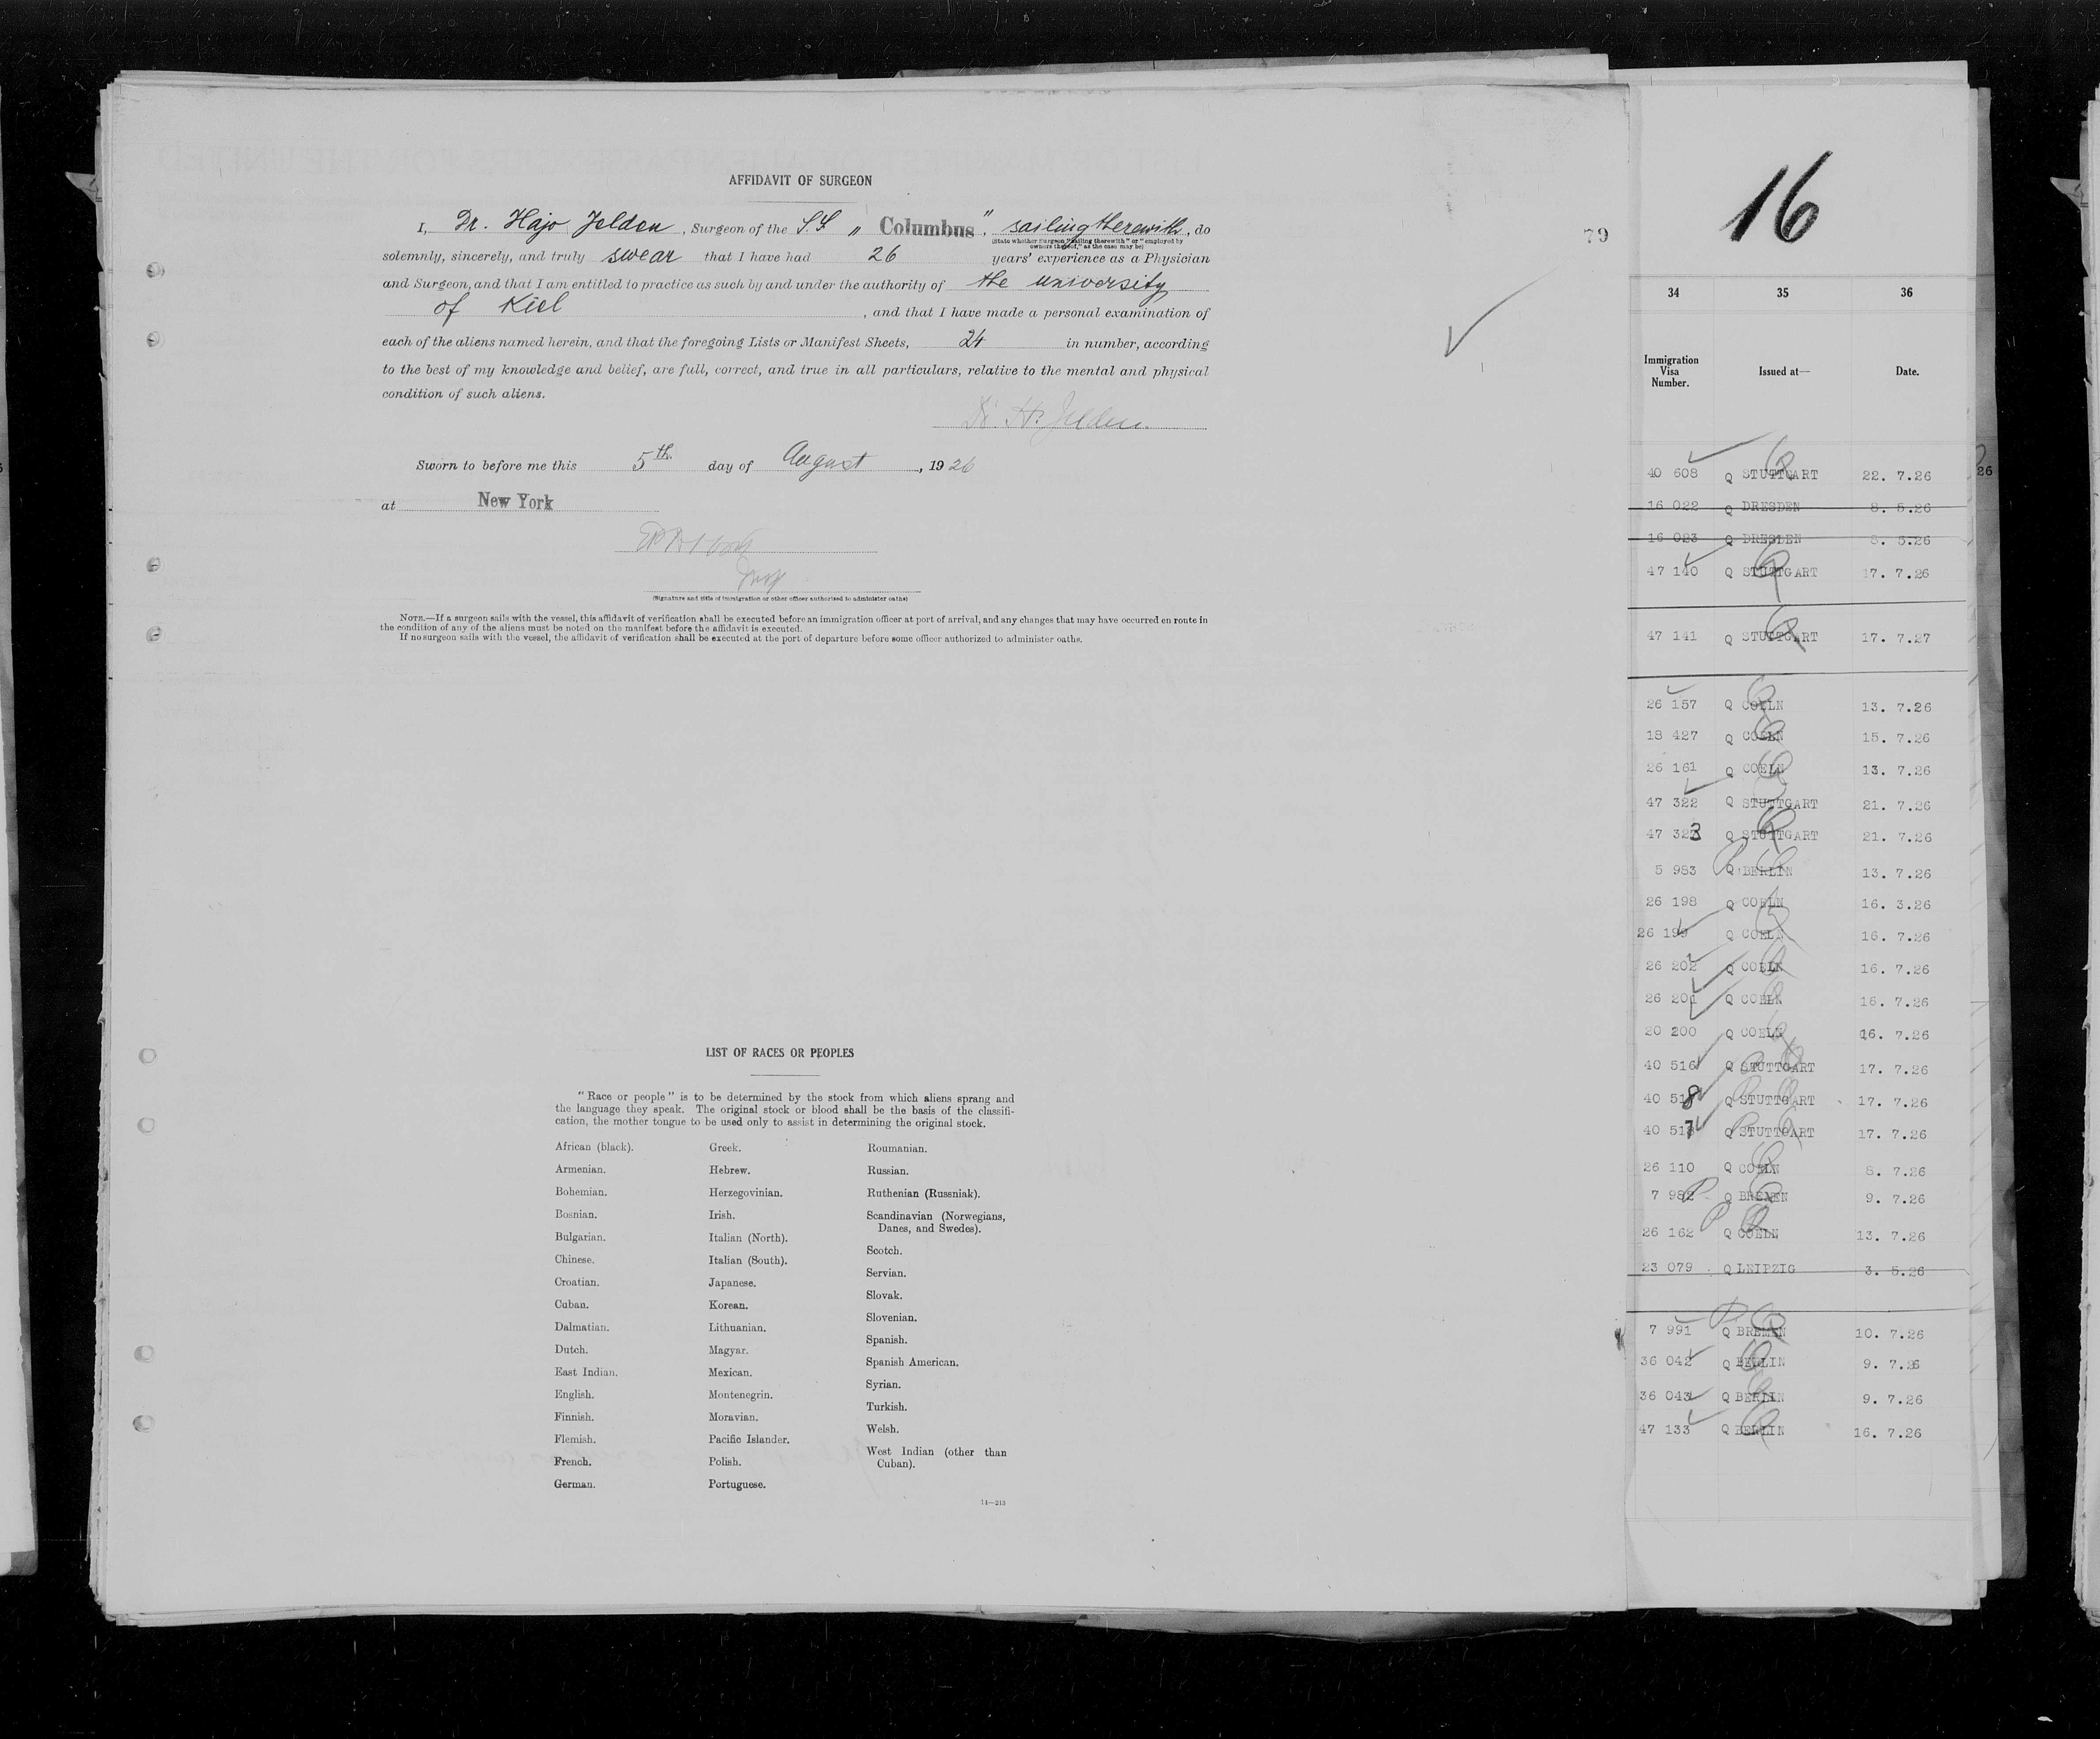 AFFIDAVIT OF SURGEON
I, Dr. Hajo Jelden, Surgeon of the S.S. „ Columbus ", sailing therewith, do
(State whether Surgeon "sailing therewith" or "employed by
owners thereof," as the case may be)
solemnly, sincerely, and truly swear that I have had 26 years' experience as a Physician
and Surgeon, and that I am entitled to practice as such by and under the authority of the university
of Kiel, and that I have made a personal examination of
each of the aliens named herein, and that the foregoing Lists or Manifest Sheets, 24 in number, according
to the best of my knowledge and belief, are full, correct, and true in all particulars, relative to the mental and physical
condition of such aliens.
Dr. H. Jelden.
Sworn to before me this 5th day of August, 1926
at New York
(Signature and title of immigration or other officer authorized to administer oaths)
NOTE.—If a surgeon sails with the vessel, this affidavit of verification shall be executed before an immigration officer at port of arrival, and any changes that may have occurred en route in
the condition of any of the aliens must be noted on the manifest before the affidavit is executed.
If no surgeon sails with the vessel, the affidavit of verification shall be executed at the port of departure before some officer authorized to administer oaths.
LIST OF RACES OR PEOPLES
"Race or people" is to be determined by the stock from which aliens sprang and
the language they speak. The original stock or blood shall be the basis of the classifi-
cation, the mother tongue to be used only to assist in determining the original stock.
African (black).
Armenian.
Bohemian.
Bosnian.
Bulgarian.
Chinese.
Croatian.
Cuban.
Dalmatian.
Dutch.
East Indian.
English.
Finnish.
Flemish.
French.
German.
Greek.
Hebrew.
Herzegovinian.
Irish.
Italian (North).
Italian (South).
Japanese.
Korean.
Lithuanian.
Magyar.
Mexican.
Montenegrin.
Moravian.
Pacific Islander.
Polish.
Portuguese.
Roumanian.
Russian.
Ruthenian (Russniak).
Scandinavian (Norwegians,
Danes, and Swedes).
Scotch.
Servian.
Slovak.
Slovenian.
Spanish.
Spanish American.
Syrian.
Turkish.
Welsh.
West Indian (other than
Cuban).
14—213
79
16
34 35 36
Immigration
Visa
Number.
Issued at—
Date.
40 608 Q STUTTGART 22. 7.26
16 022 Q DRESDEN 8. 5.26
16 023 Q DRESDEN 8. 5.26
47 140 Q STUTTGART 17. 7.26
47 141 Q STUTTGART 17. 7.27
26 157 Q COELN 13. 7.26
18 427 Q COELN 15. 7.26
26 161 Q COELN 13. 7.26
47 322 Q STUTTGART 21. 7.26
47 323 Q STUTTGART 21. 7.26
5 983 Q BERLIN 13. 7.26
26 198 Q COELN 16. 3.26
26 199 Q COELN 16. 7.26
26 202 Q COELN 16. 7.26
26 201 Q COELN 16. 7.26
20 200 Q COELN 16. 7.26
40 516 Q STUTTGART 17. 7.26
40 518 Q STUTTGART 17. 7.26
40 517 Q STUTTGART 17. 7.26
26 110 Q COELN 8. 7.26
7 982 Q BREMEN 9. 7.26
26 162 Q COELN 13. 7.26
23 079 Q LEIPZIG 3. 5.26
7 991 Q BREMEN 10. 7.26
36 042 Q BERLIN 9. 7.26
36 043 Q BERLIN 9. 7.26
47 133 Q BERLIN 16. 7.26
26